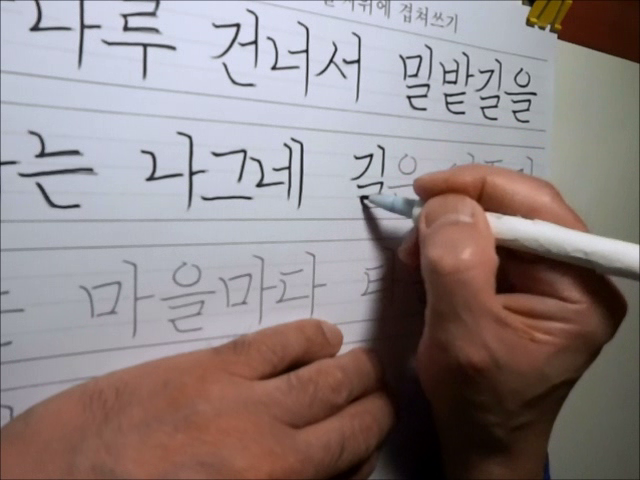 위에 겹쳐쓰기
나루 건너서 밀밭길을
는 나그네 길은
마을마다